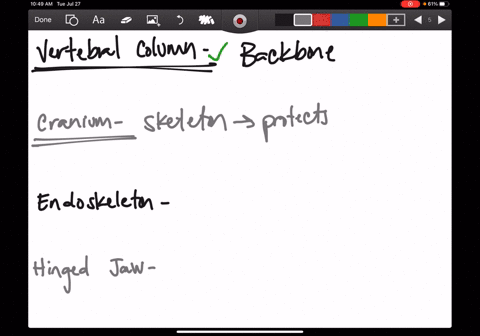 10:49 AM Tue Jul 27
61%
Done
Aa
5
Vertebral Column - ✓ Backbone
Cranium - skeleton → protects
Endoskeleton -
Hinged Jaw -